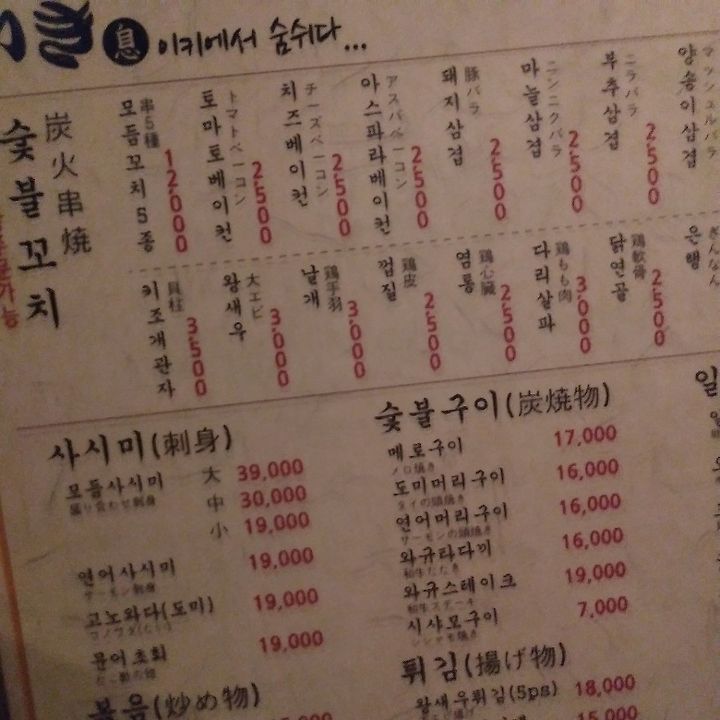 息 이키에서 숨쉬다...
숯불꼬치
炭火串焼
모듬꼬치5종
串5種
12,000
토마토베이컨
トマトベーコン
2,500
치즈베이컨
チーズベーコン
2,500
아스파라베이컨
アスパベーコン
2,500
돼지삼겹
豚バラ
2,500
마늘삼겹
ニンニクバラ
2,500
부추삼겹
ニラバラ
2,500
양송이삼겹
マッシュルバラ
키조개관자
貝柱
3,500
왕새우
大エビ
3,000
날개
鶏手羽
3,000
껍질
鶏皮
2,500
염통
鶏心臓
2,500
다리살파
鶏もも肉
3,000
닭연골
鶏軟骨
2,500
은행
ぎんなん
사시미(刺身)
모듬사시미 大 39,000
盛り合わせ刺身
中 30,000
小 19,000
연어사시미 19,000
サーモン刺身
고노와다(도미) 19,000
문어초회 19,000
볶음(炒め物)
숯불구이(炭焼物)
메로구이 17,000
メロ焼き
도미머리구이 16,000
タイの頭焼き
연어머리구이 16,000
サーモンの頭焼き
와규타다끼 16,000
和牛たたき
와규스테이크 19,000
和牛ステーキ
시샤모구이 7,000
シシャモ焼き
튀김(揚げ物)
왕새우튀김(5ps) 18,000
15,000